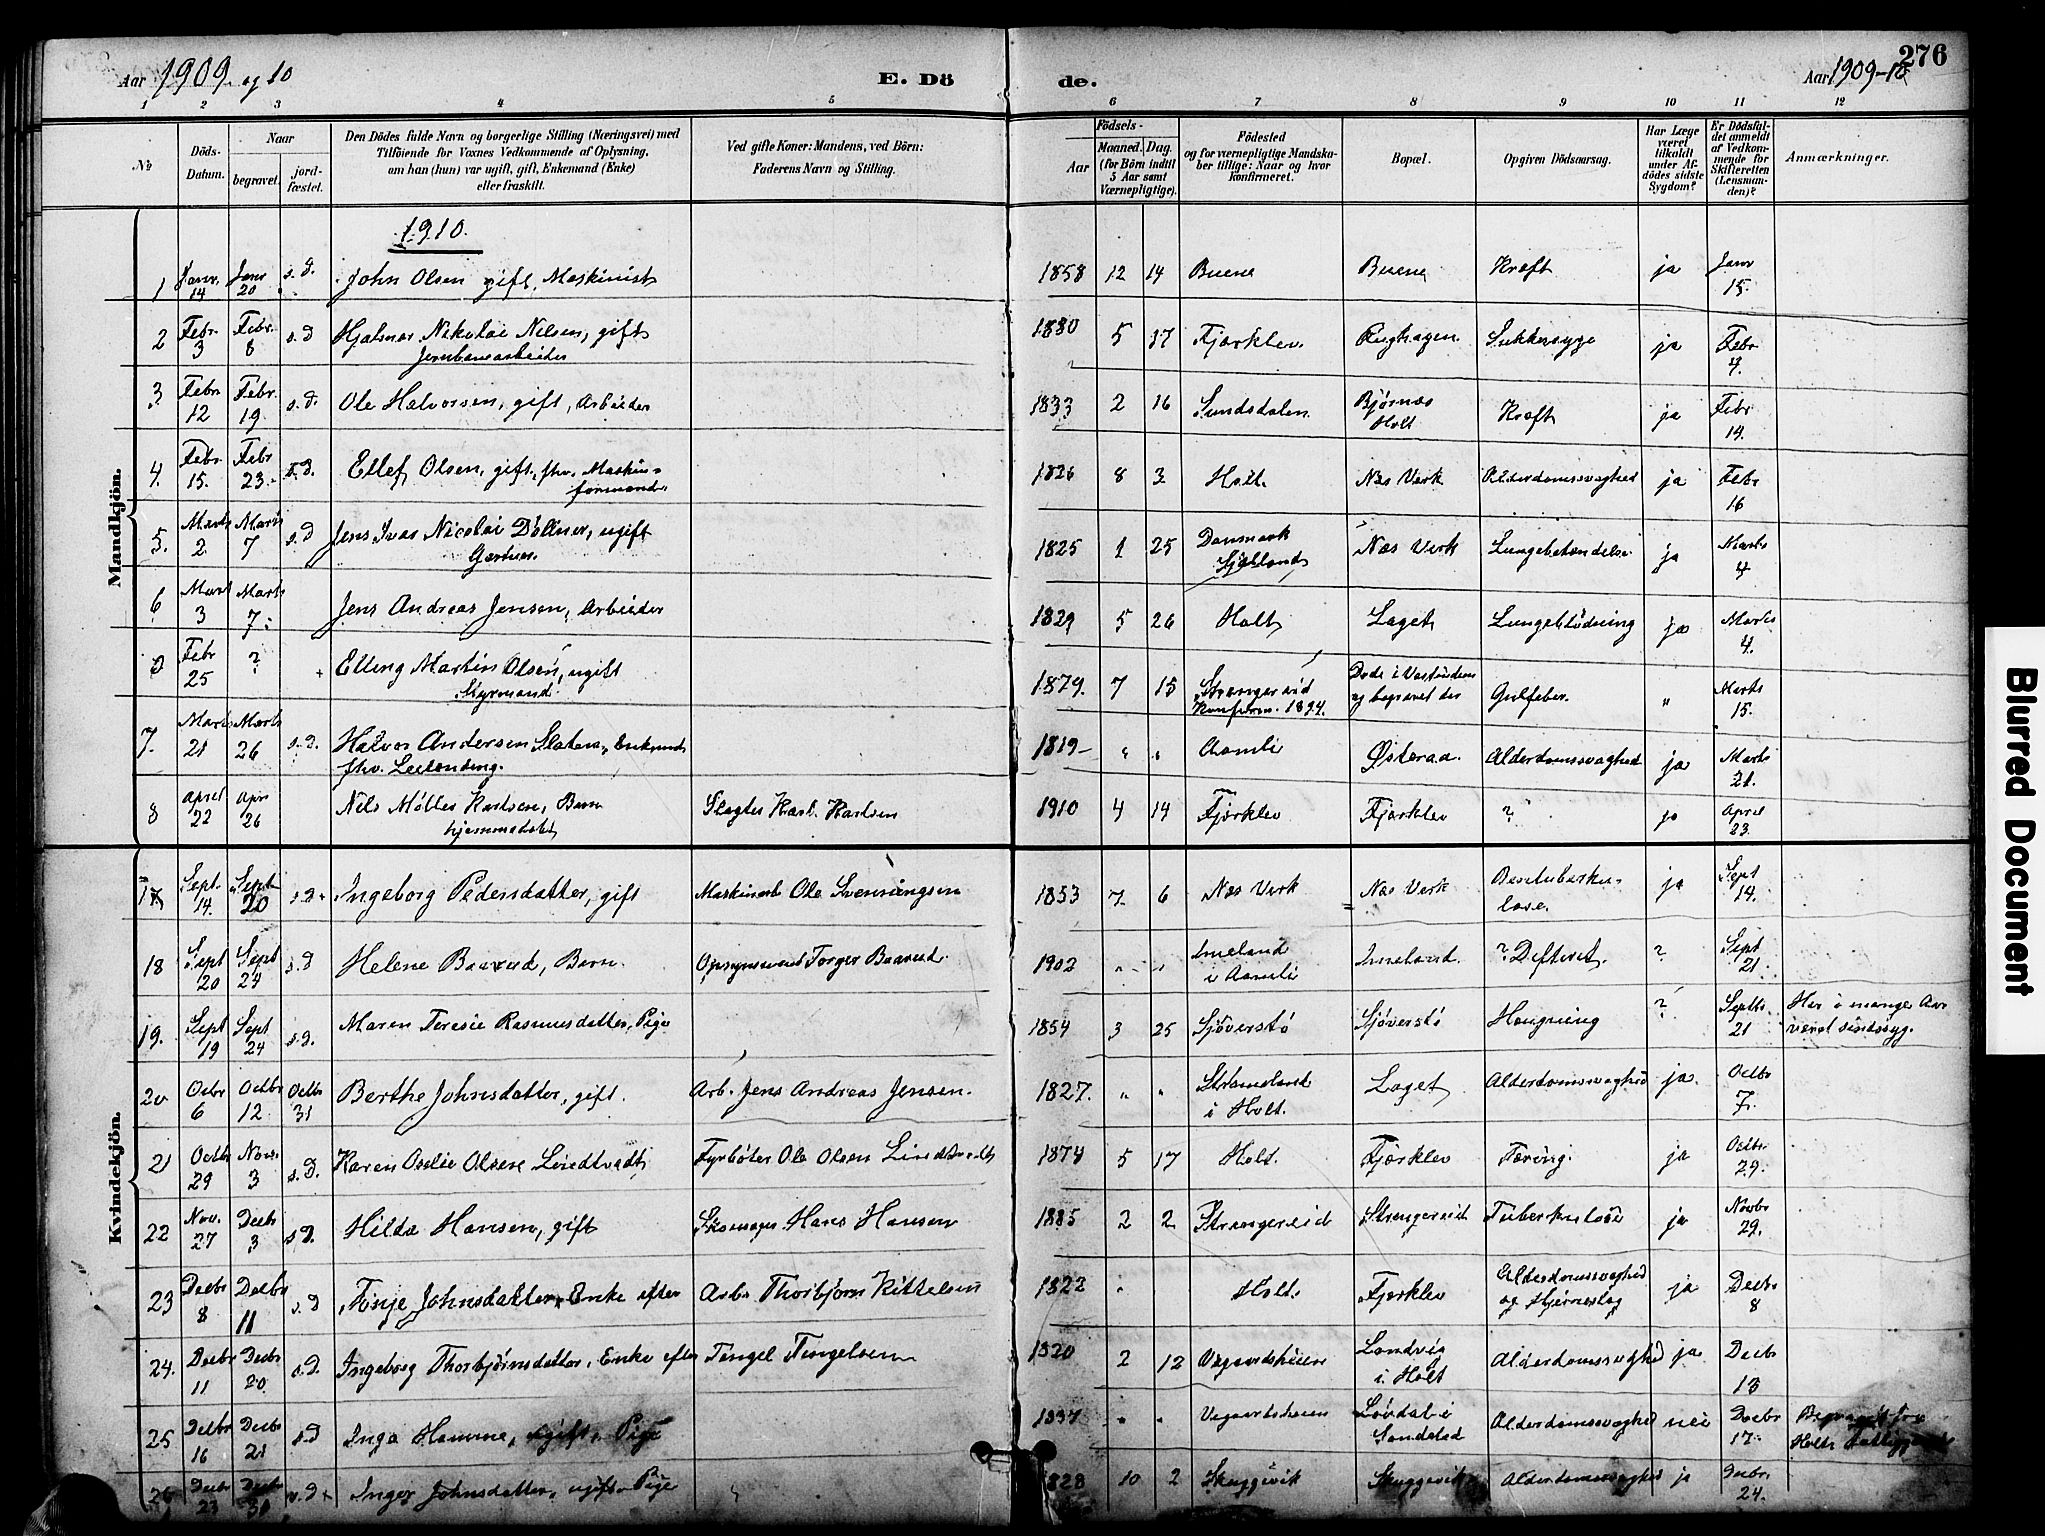 Aar 1909 og 10
E. Dö
de.
Aar 1909-10
276
1 2 3 4 5 6 7 8 9 10 11 12
№
Döds-Datum.
Naar
begravet.
jord-fæstet.
Den Dödes fulde Navn og borgerlige Stilling (Næringsvei) med
Tilföiende for Voxnes Vedkommende af Oplysning,
om han (hun) var ugift, gift, Enkemand (Enke)
eller fraskilt.
Ved gifte Koner: Mandens, ved Börn:
Faderens Navn og Stilling.
Födsels-
Aar
Maaned. Dag.
(for Börn indtil
5 Aar samt
Værnepligtige).
Födested
og for værnepligtige Mandska-
ber tillige: Naar og hvor
konfirmeret.
Bopæl.
Opgiven Dödsaarsag.
Har Læge
været
tilkaldt
under Af-
dödes sidste
Sygdom?
Er Dödsfal-
det anmeldt
af Vedkom-
mende for
Skifteretten
(Lensman-
den)?
Anmærkninger.
Mandkjön.
1910.
1 Janr. 14 Janr 20 s.d. John Olsen gift, Maskinist 1858 12 14 Buene Buene Kræft ja Janr 15.
2 Febr. 3 Febr. 8 s.d Hjalmar Nikolai Nilsen, gift
Jernbanearbeider 1880 5 17 Fjærklev Sukkersyge ja Febr 4.
3. Febr 12 Febr. 19. s.d. Ole Halvorsen, gift, Arbeider 1833 2 16 Sundsdalen Bjørnaas Holt Kræft ja Febr 14.
4. Febr 15. Febr 23. s.d. Ellef Olsen, gift, fhv. Maskin-
formand 1826 8 3 Holt. Næs Værk Alderdomssvaghed ja Febr 16
5. Marts 2. Marts 7 s.d Jens Ivar Nicolai Döllner, ugift
Gartner. 1825 1 25 Danmark Sjælland Næs Værk Lungebetændelse ja Marts 4
6 Marts 3 Marts 7. Jens Andreas Jensen, Arbeider 1829 5 26 Holt Laget Lungeblödning ja Marts 4.
Febr 25 ? Elling Martin Olsen, ugift
Styrmand 1879. 7 15 Strengereid
Konfirm. 1894. Døde i Vestindien
og begravet der Gulfeber. " Marts 15.
7. Marts 21 Marts 26 s.d. Halvor Andersen Enkemd
fhv. Leilending. 1819 " " Aamli Østeraa. Alderdomssvaghed ja Marts 21.
8 April 22 Apr. 26 Nils Möller Karlsen, Barn
hjemmedøbt Slagter Karl Karlsen 1910 4 14 Fjærklev Fjærklev ? ja April 23.
Kvindekjön.
17 Sept. 14. Sept 20 s.d. Ingeborg Pedersdatter, gift Maskinarb Ole Svenningsen 1853 7. 6 Næs Værk Næs Værk Bentuberku-
lose. ja Sept 14.
18 Sept 20 Sept 24 s.d Helene Baarud, Barn. Opsynsmand Torger Baarud. 1902 " " Imeland
i Aamli Imeland. ? Difterit. ? Sept 21
19. Sept 19 Sept 24 s.d. Maren Teresie Rasmusdatter, Pige 1854 3 25 Sjöverstö Sjöverstö Hængning ? Septb. 21 Har i mange Aar
været sindssyg.
20 Octbr 6 Octbr 12 Octbr 31 Berthe Johnsdatter, gift. Arb. Jens Andreas Jensen. 1827. " " Strømeland
i Holt. Laget Alderdomssvaghed ja. Octbr 7.
21 Octbr 29 Novr. 3 s.d. Karen Oselie Olsen Lindtvedt Fyrböter Ole Olsen Lindtvedt 1874 5 17 Holt. Fjærklev Tæring. ja Octbr. 29.
22 Nov. 27 Decbr 3 s.d. Hilda Hansen, gift Skomager Hans Hansen 1885 2 2 Strengereid Strengereid Tuberkulose ja Novbr 29.
23 Decbr 8 Decbr 11 s.d Johnsdatter, Enke efter Arb. Thorbjörn Kittelsen 1822 " Holt. Fjærklev Alderdomssvaghed
og Hjerneslag ja Decbr 8
24. Decbr 11 Decbr 20. s.d. Ingeborg Thorbjörnsdatter, Enke efter Tengel Tengelsen 1820 2 12 Vegaardsheien Landvig
i Holt Alderdomssvaghed ja Decbr 13
25 Decbr 16 Decbr 21 s.d Inga Hamme, ugift, Pige " " Vegaardsheien Lövdal i
Søndeled Alderdomssvaghed nei Decbr 17. Begravet fra
Holts
26 Decbr 23 Decbr s.d Inger Johnsdatter, ugift Pige 1828 10 2 Skuggevik Skuggevik Alderdomssvaghed ja Decbr. 24.
Blurred Document